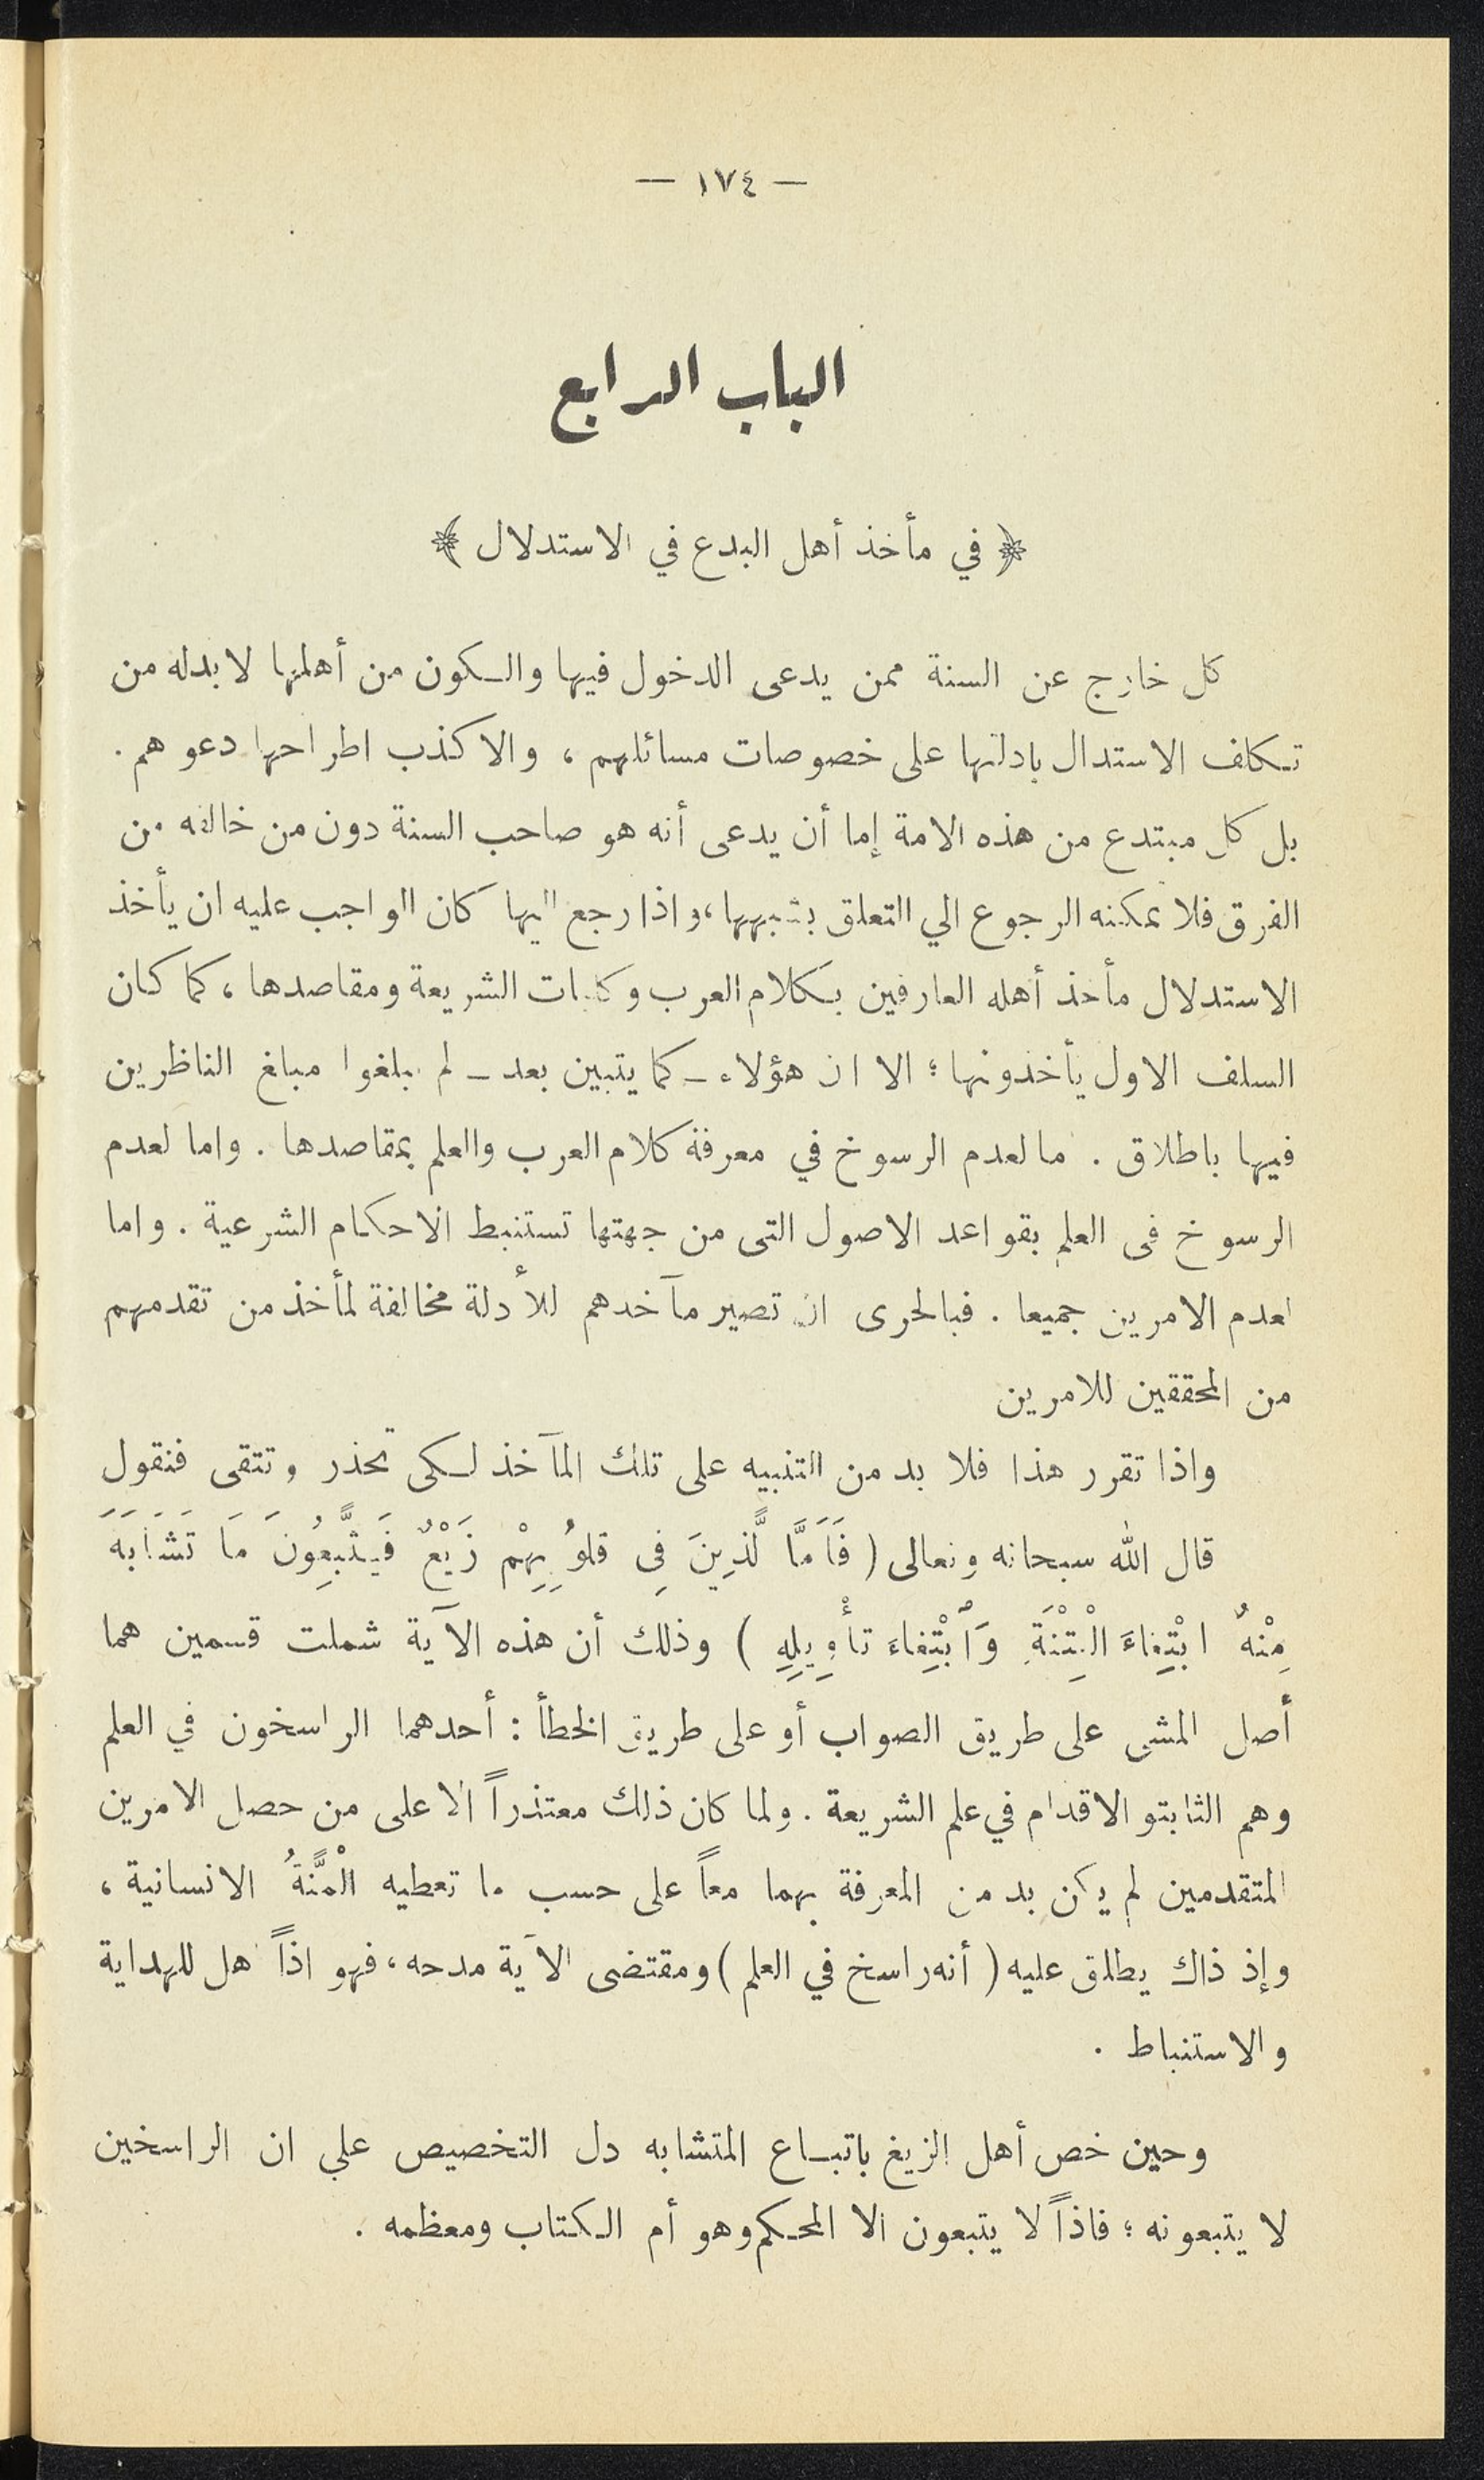 — ١٧٤ —
الباب الرابع
﴿ في مأخذ أهل البدع في الاستدلال ﴾
كل خارج عن السنة ممن يدعى الدخول فيها والكون من أهلها لا بدله من
تكلف الاستدال بادلتها على خصوصات مسائلهم ، والا كذب اطراحها دعوهم .
بل كل مبتدع من هذه الامة إما أن يدعى أنه هو صاحب السنة دون من خالفه من
الفرق فلا يمكنه الرجوع الي التعلق بشبهها ، واذا رجع اليها كان الواجب عليه ان يأخذ
الاستدلال مأخذ أهله العارفين بكلام العرب وكليات الشريعة ومقاصدها ، كما كان
السلف الاول يأخذونها ؛ الا ان هؤلاء – كما يتبين بعد – لم يبلغوا مبلغ الناظرين
فيها باطلاق . اما لعدم الرسوخ في معرفة كلام العرب والعلم بمقاصدها . واما لعدم
الرسوخ فى العلم بقواعد الاصول التى من جهتها تستنبط الاحكام الشرعية . واما
لعدم الامرين جميعا . فبالحرى ان تصير مآخدهم للأدلة مخالفة لمأخذ من تقدمهم
من المحققين للامرين
واذا تقرر هذا فلا بد من التنبيه على تلك المآخذ لكى تحذر وتتقى فنقول
قال الله سبحانه وتعالى ( فَأَمَّا الَّذِينَ فِي قلُوبِهِمْ زَيْغٌ فَيَتَّبِعُونَ مَا تَشَابَهَ
مِنْهُ ابْتِغاءَ الْفِتْنَةِ وَابْتِغاءَ تأْوِيلِهِ ) وذلك أن هذه الآية شملت قسمين هما
أصل المشى على طريق الصواب أو على طريق الخطأ : أحدهما الراسخون في العلم
وهم الثابتو الاقدام في علم الشريعة . ولما كان ذلك معتذراً الا على من حصل الامرين
المتقدمين لم يكن بد من المعرفة بهما معاً على حسب ما تعطيه الْمنَّةُ الانسانية ،
وإذ ذاك يطلق عليه ( أنه راسخ في العلم ) ومقتضى الآية مدحه ، فهو اذاً أهل للهداية
والاستنباط .
وحين خص أهل الزيغ باتباع المتشابه دل التخصيص علي ان الراسخين
لا يتبعونه ؛ فاذاً لا يتبعون الا المحكم وهو أم الكتاب ومعظمه .